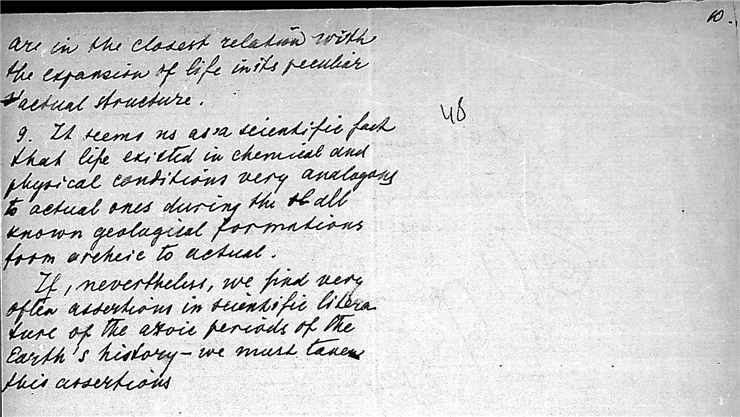 10.
are in the closest relation with
the expansion of life in its peculiar
actual structure.
48
9. It seems us as a scientific fact
that life existed in chemical and
physical conditions very analogous
to actual ones during the all
known geological formations
from archeic to actual.
If, nevertheless, we find very
often assertions in scientific litera
ture of the azoic periods of the
Earth's history – we must taken
this assertions